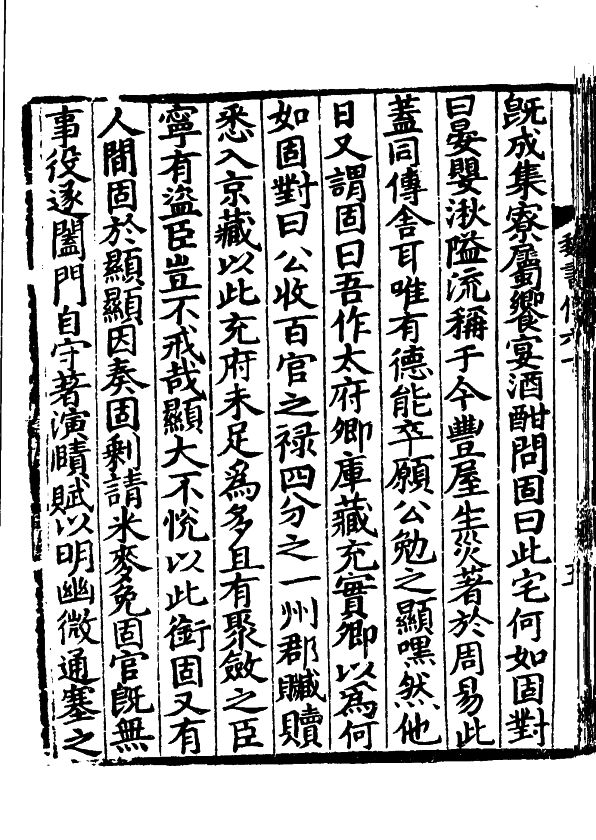 既成集寮屬饗宴酒酣問固曰此宅何如固對
曰晏嬰湫隘流稱于今豐屋生災著於周易此
蓋同傳舍耳唯有德能卒願公勉之顯嘿然他
日又謂固曰吾作太府卿庫藏充實卿以為何
如固對曰公收百官之祿四分之一州郡贓贖
悉入京藏以此充府未足為多且有聚斂之臣
寧有盜臣豈不戒哉顯大不悅以此銜固又有
人間固於顯顯因奏固剩請米麥免固官既無
事役遂闔門自守著演賾賦以明幽微通塞之
魏書傳六十
五